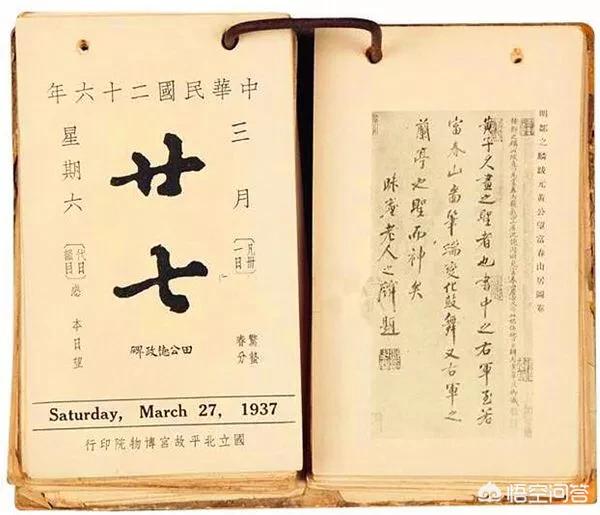 中華民國二十六年
三月
凡卅一日
廿七
星期六
代日韻目
感
本日望
驚蟄
春分
田公德政碑
Saturday, March 27, 1937
國立北平故宮博物院印行
明鄒之麟跋元黃公望富春山居圖卷
黃子久畫之聖者也書中之右軍至若
富春山圖筆端變化鼓舞又右軍之
蘭亭也聖而神矣
昧菴老人之麟題
悟空问答